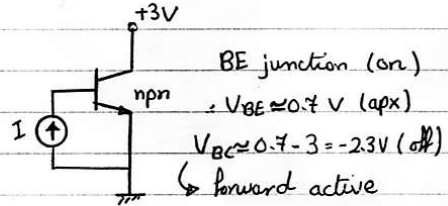 +3V
BE junction (on)
npn
∴ VBE ≃ 0.7 V (apx)
I
VBC ≃ 0.7 - 3 = -2.3V (off)
↳ forward active